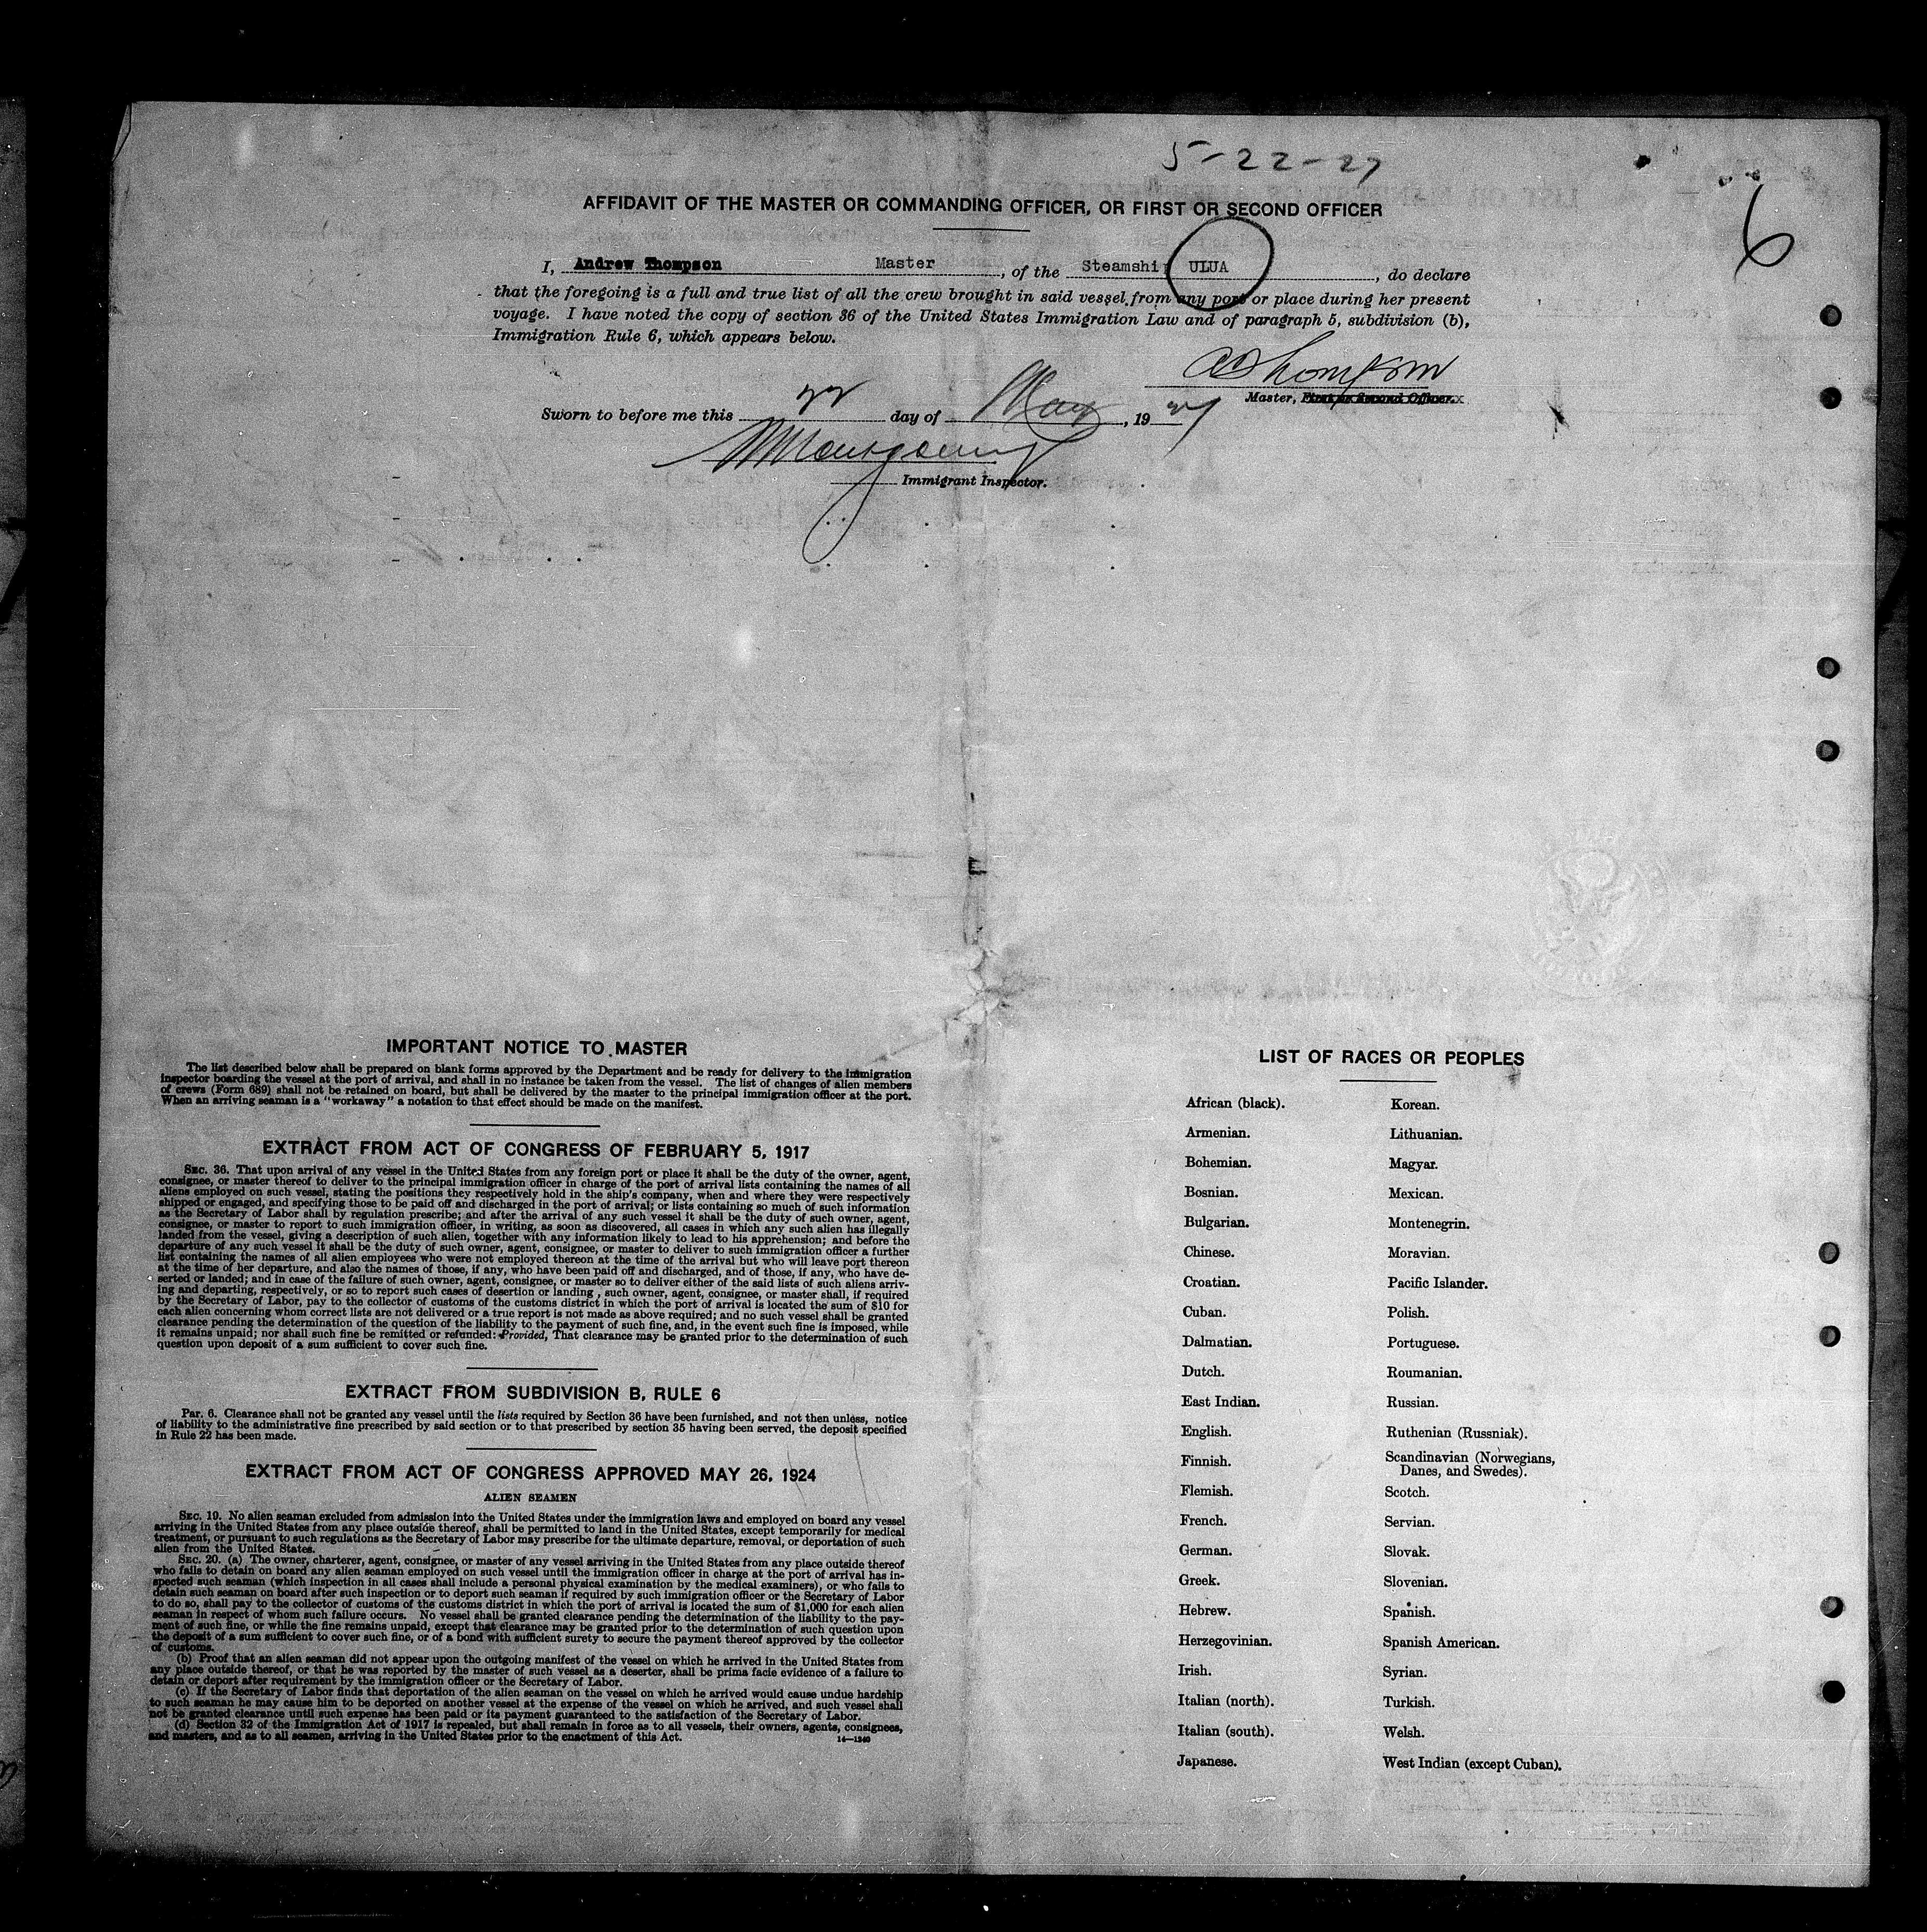 5-22-27
6
AFFIDAVIT OF THE MASTER OR COMMANDING OFFICER, OR FIRST OR SECOND OFFICER
I, Andrew Thompson Master, of the Steamshi ULUA, do declare
that the foregoing is a full and true list of all the crew brought in said vessel from any port or place during her present
voyage. I have noted the copy of section 36 of the United States Immigration Law and of paragraph 5, subdivision (b),
Immigration Rule 6, which appears below.
A Thompson
Master, First or Second Officer.x
Sworn to before me this 22 day of May, 1927
Montgomery
Immigrant Inspector.
IMPORTANT NOTICE TO MASTER
The list described below shall be prepared on blank forms approved by the Department and be ready for delivery to the immigration
inspector boarding the vessel at the port of arrival, and shall in no instance be taken from the vessel. The list of changes of alien members
of crews (Form 689) shall not be retained on board, but shall be delivered by the master to the principal immigration officer at the port.
When an arriving seaman is a "workaway" a notation to that effect should be made on the manifest.
EXTRACT FROM ACT OF CONGRESS OF FEBRUARY 5, 1917
SEC. 36. That upon arrival of any vessel in the United States from any foreign port or place it shall be the duty of the owner, agent,
consignee, or master thereof to deliver to the principal immigration officer in charge of the port of arrival lists containing the names of all
aliens employed on such vessel, stating the positions they respectively hold in the ship's company, when and where they were respectively
shipped or engaged, and specifying those to be paid off and discharged in the port of arrival; or lists containing so much of such information
as the Secretary of Labor shall by regulation prescribe; and after the arrival of any such vessel it shall be the duty of such owner, agent,
consignee, or master to report to such immigration officer, in writing, as soon as discovered, all cases in which any such alien has illegally
landed from the vessel, giving a description of such alien, together with any information likely to lead to his apprehension; and before the
departure of any such vessel it shall be the duty of such owner, agent, consignee, or master to deliver to such immigration officer a further
list containing the names of all alien employees who were not employed thereon at the time of the arrival but who will leave port thereon
at the time of her departure, and also the names of those, if any, who have been paid off and discharged, and of those, if any, who have de-
serted or landed; and in case of the failure of such owner, agent, consignee, or master so to deliver either of the said lists of such aliens arriv-
ing and departing, respectively, or so to report such cases of desertion or landing , such owner, agent, consignee, or master shall, if required
by the Secretary of Labor, pay to the collector of customs of the customs district in which the port of arrival is located the sum of $10 for
each alien concerning whom correct lists are not delivered or a true report is not made as above required; and no such vessel shall be granted
clearance pending the determination of the question of the liability to the payment of such fine, and, in the event such fine is imposed, while
it remains unpaid; nor shall such fine be remitted or refunded: Provided, That clearance may be granted prior to the determination of such
question upon deposit of a sum sufficient to cover such fine.
EXTRACT FROM SUBDIVISION B, RULE 6
PAR. 6. Clearance shall not be granted any vessel until the lists required by Section 36 have been furnished, and not then unless, notice
of liability to the administrative fine prescribed by said section or to that prescribed by section 35 having been served, the deposit specified
in Rule 22 has been made.
EXTRACT FROM ACT OF CONGRESS APPROVED MAY 26, 1924
ALIEN SEAMEN
SEC. 19. No alien seaman excluded from admission into the United States under the immigration laws and employed on board any vessel
arriving in the United States from any place outside thereof, shall be permitted to land in the United States, except temporarily for medical
treatment, or pursuant to such regulations as the Secretary of Labor may prescribe for the ultimate departure, removal, or deportation of such
alien from the United States.
SEC. 20. (a) The owner, charterer, agent, consignee, or master of any vessel arriving in the United States from any place outside thereof
who fails to detain on board any alien seaman employed on such vessel until the immigration officer in charge at the port of arrival has in-
spected such seaman (which inspection in all cases shall include a personal physical examination by the medical examiners), or who fails to
detain such seaman on board after such inspection or to deport such seaman if required by such immigration officer or the Secretary of Labor
to do so, shall pay to the collector of customs of the customs district in which the port of arrival is located the sum of $1,000 for each alien
seaman in respect of whom such failure occurs. No vessel shall be granted clearance pending the determination of the liability to the pay-
ment of such fine, or while the fine remains unpaid, except that clearance may be granted prior to the determination of such question upon
the deposit of a sum sufficient to cover such fine, or of a bond with sufficient surety to secure the payment thereof approved by the collector
of customs.
(b) Proof that an alien seaman did not appear upon the outgoing manifest of the vessel on which he arrived in the United States from
any place outside thereof, or that he was reported by the master of such vessel as a deserter, shall be prima facie evidence of a failure to
detain or deport after requirement by the immigration officer or the Secretary of Labor.
(c) If the Secretary of Labor finds that deportation of the alien seaman on the vessel on which he arrived would cause undue hardship
to such seaman he may cause him to be deported on another vessel at the expense of the vessel on which he arrived, and such vessel shall
not be granted clearance until such expense has been paid or its payment guaranteed to the satisfaction of the Secretary of Labor.
(d) Section 32 of the Immigration Act of 1917 is repealed, but shall remain in force as to all vessels, their owners, agents, consignees,
and masters, and as to all seamen, arriving in the United States prior to the enactment of this Act.
14—1240
LIST OF RACES OR PEOPLES
African (black).
Armenian.
Bohemian.
Bosnian.
Bulgarian.
Chinese.
Croatian.
Cuban.
Dalmatian.
Dutch.
East Indian.
English.
Finnish.
Flemish.
French.
German.
Greek.
Hebrew.
Herzegovinian.
Irish.
Italian (north).
Italian (south).
Japanese.
Korean.
Lithuanian.
Magyar.
Mexican.
Montenegrin.
Moravian.
Pacific Islander.
Polish.
Portuguese.
Roumanian.
Russian.
Ruthenian (Russniak).
Scandinavian (Norwegians,
Danes, and Swedes).
Scotch.
Servian.
Slovak.
Slovenian.
Spanish.
Spanish American.
Syrian.
Turkish.
Welsh.
West Indian (except Cuban).